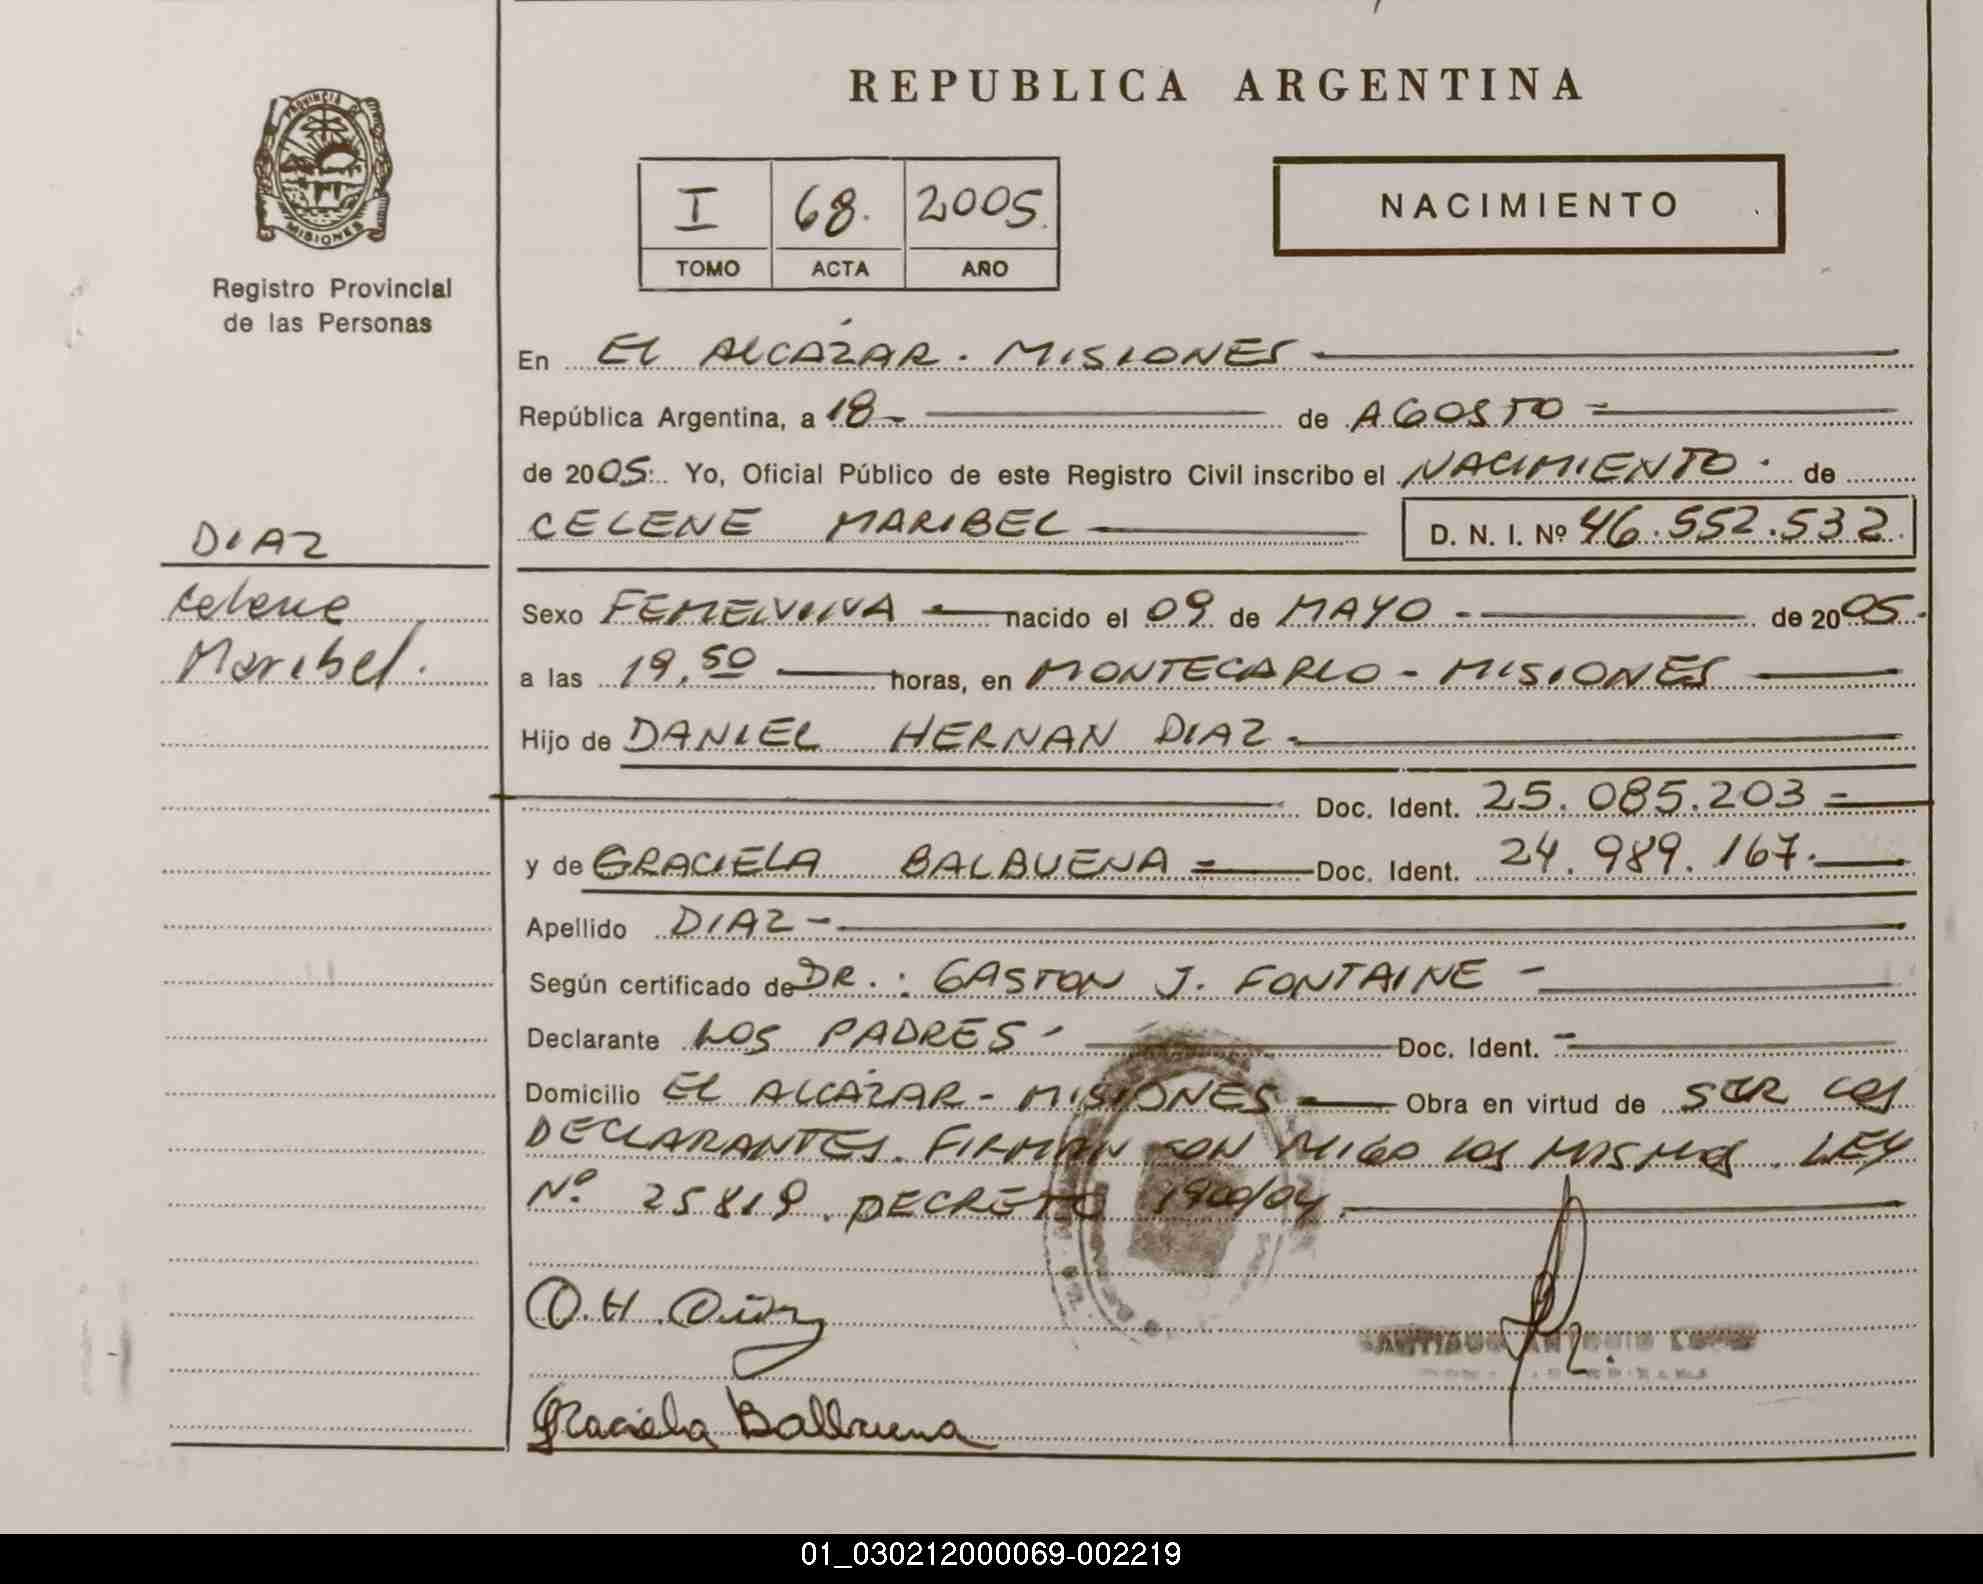 REPUBLICA ARGENTINA
PROVINCIA DE
MISIONES
Registro Provincial
de las Personas
I 68. 2005.
TOMO ACTA AÑO
NACIMIENTO
En EL ALCÁZAR - MISIONES
República Argentina, a 18 - de AGOSTO -
de 2005. Yo, Oficial Público de este Registro Civil inscribo el NACIMIENTO. de
CELENE MARIBEL D. N. I. Nº 46.552.532.
DIAZ
Celene
Maribel.
Sexo FEMENINA - nacido el 09 de MAYO - de 2005.
a las 19,50 horas, en MONTECARLO - MISIONES
Hijo de DANIEL HERNAN DIAZ -
Doc. Ident. 25.085.203 -
y de GRACIELA BALBUENA - Doc. Ident. 24.989.167.
Apellido DIAZ -
Según certificado de DR.: GASTON J. FONTAINE -
Declarante LOS PADRES - Doc. Ident. -
Domicilio EL ALCÁZAR - MISIONES - Obra en virtud de SER LOS
DECLARANTES. FIRMAN CON MIGO LOS MISMOS. LEY
Nº 25819. DECRETO 1900/04.
D.H. Diaz
SANTIAGO ANTONIO
Graciela Balbuena
01_030212000069-002219